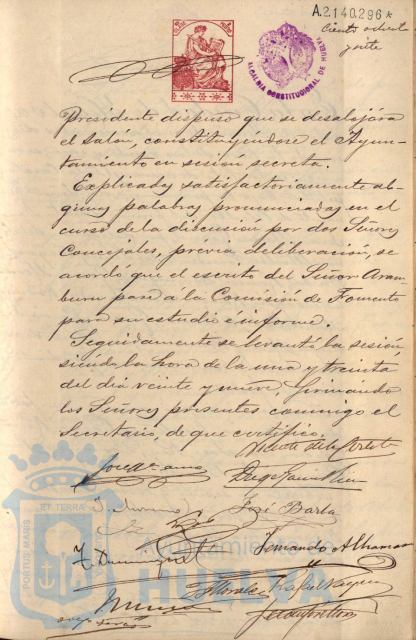 A.2.140.296*
Ciento ochenta
y siete
ALCALDIA CONSTITUCIONAL DE HUELVA
Presidente dispuso que se desalojara
el salón, constituyéndose el Ayun-
tamiento en sesión secreta.
Explicadas satisfactoriamente al-
gunas palabras pronunciadas en el
curso de la discusión por dos Señores
Concejales, prévia deliberación, se
acordó que el escrito del Señor Aram-
buru pase a la Comisión de Fomento
para su estudio é informe.
Seguidamente se levantó la sesión
siendo la hora de la una y treinta
del dia veinte y nueve, firmando
los Señores presentes conmigo el
Secretario, de que certifico.
José Barba
Fernando
Rafael Vazquez
PORTUS MARIS ET TERRÆ
Ayuntamiento de
HUELVA